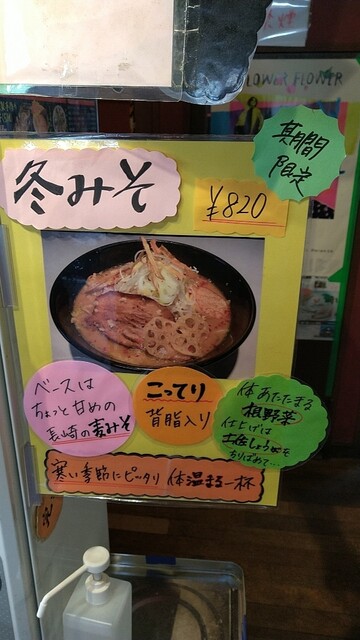 LOWER FLOWER
期間
限定
冬みそ
¥820
ベースは
ちょっと甘めの
長崎の麦みそ
こってり
背脂入り
体あたたまる
根野菜
仕上げは
土佐しょうがを
ちりばめて…
寒い季節にピッタリ 体温まる一杯